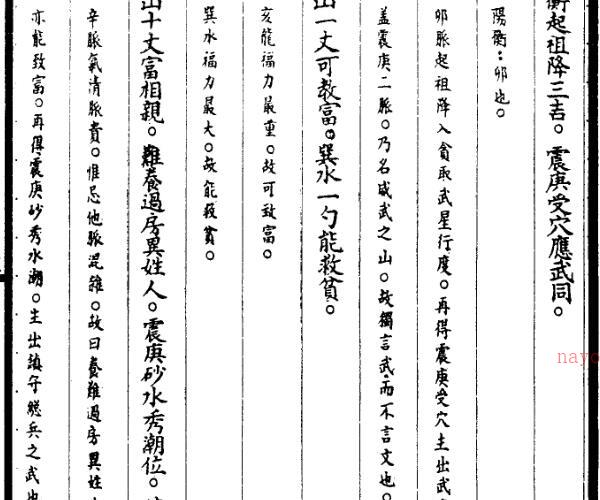 衡起祖降三吉。震庚受穴應武同。
陽衡：卯也。
卯脈起祖降入貪取武星行度。再得震庚受穴主出武
蓋震庚二脈。乃名威武之山。故獨言武。而不言文也。
山一丈可教富。巽水一勺能救貧。
亥龍福力最重。故可致富。
巽水福力最大。故能救貧。
山十丈富相親。難養過房異姓人。震庚砂水秀潮位。
辛脈氣清脈貴。惟忌他脈混雜。故曰養難過房異姓
亦能致富。再得震庚砂秀水潮。主出鎮守總兵之武也
nayo